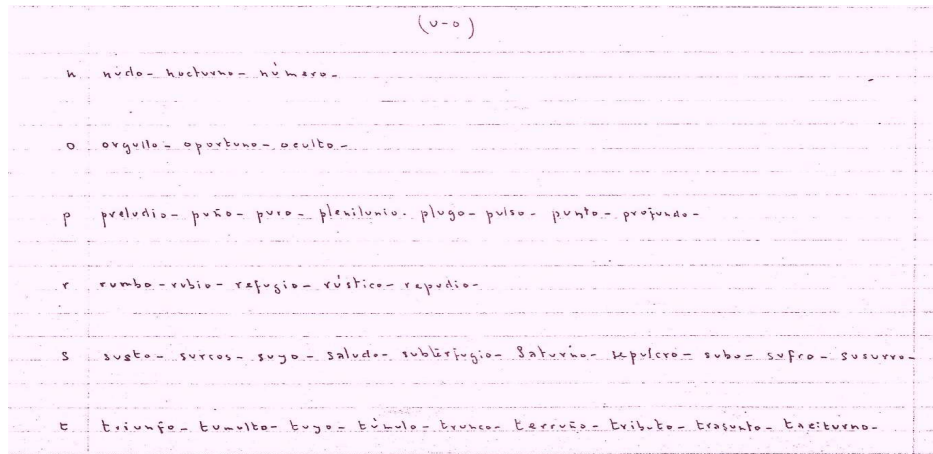 (u-o)
n nudo- nocturno- número-
o orgullo- oportuno- oculto-
p preludio- puño- puro- plenilunio- plugo- pulso- punto- profundo-
r rumbo- rubio- refugio- rústico- repudio-
s susto- surcos- suyo- saludo- subterfugio- Saturno- sepulcro- subo- sufro- susurro-
t triunfo- tumulto- tuyo- túmulo- trunco- terruño- tributo- trasunto- taciturno-